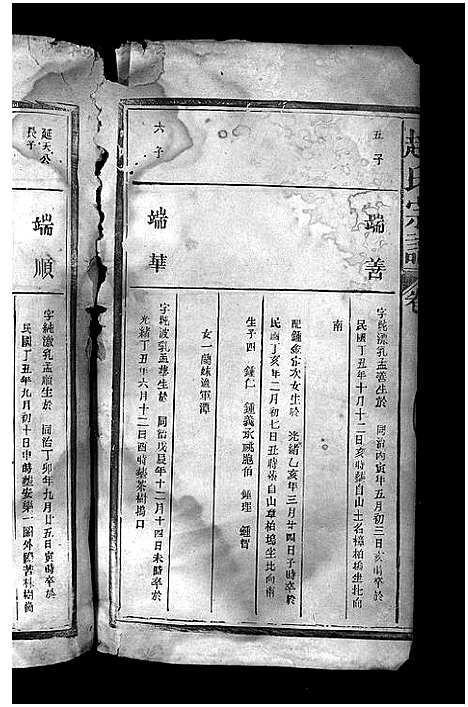 趙氏宗譜 卷
五子
端善
字純漂乳孟善生於 同治丙寅年五月初三日亥時卒於
民國丁丑年十月十二日亥時葬自山土名樟柏塢坐北向
南
配鍾金宗次女生於 光緒乙亥年三月廿四日子時卒於
民國丁亥年二月初七日丑時葬自山章柏塢坐北向南
生子四 鍾仁 鍾義承祧胞伯 鍾理 鍾智
女一蘭妹適軍潭
六子
端華
字純波乳孟華生於 同治戊辰年十二月十四日未時卒於
光緒丁丑年六月十二日酉時葬茶樹塢口
延天公
長子
端順
字純激乳孟順生於 同治丁卯年九月廿五日寅時卒於
民國丁丑年九月初十日申時葬安第一圖外